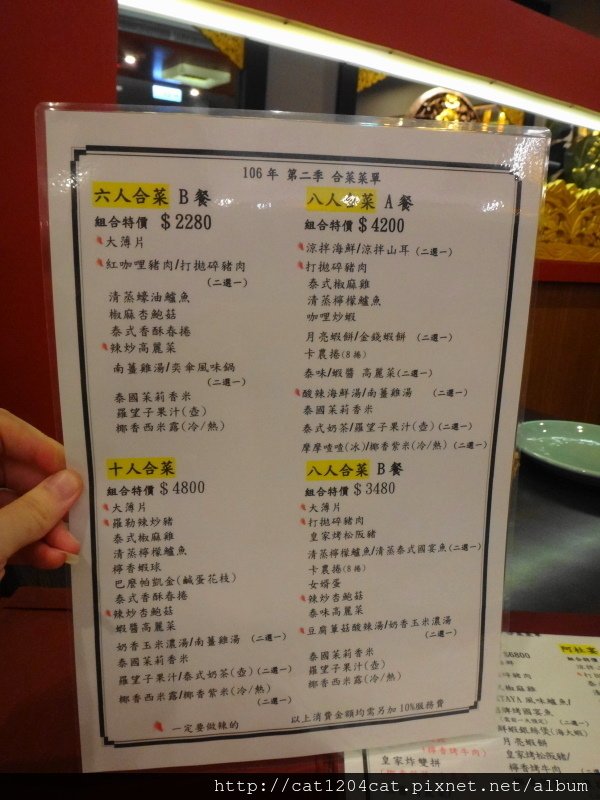 106年 第二季 合菜菜單
六人合菜 B 餐
組合特價 $2280
大薄片
紅咖哩豬肉/打拋碎豬肉
(二選一)
清蒸蠔油鱸魚
椒麻杏鮑菇
泰式香酥春捲
辣炒高麗菜
南薑雞湯/奕傘風味鍋
(二選一)
泰國茉莉香米
羅望子果汁(壺)
椰香西米露(冷/熱)
八人合菜 A 餐
組合特價 $4200
涼拌海鮮/涼拌山耳 (二選一)
打拋碎豬肉
泰式椒麻雞
清蒸檸檬鱸魚
咖哩炒蝦
月亮蝦餅/金錢蝦餅 (二選一)
卡農捲(8捲)
泰味/蝦醬 高麗菜(二選一)
酸辣海鮮湯/南薑雞湯 (二選一)
泰國茉莉香米
泰式奶茶/羅望子果汁(壺)(二選一)
摩摩喳喳(冰)/椰香紫米(冷/熱)(二選一)
十人合菜
組合特價 $4800
大薄片
羅勒辣炒豬
泰式椒麻雞
清蒸檸檬鱸魚
檸香蝦球
巴麼帕凱金(鹹蛋花枝)
泰式香酥春捲
辣炒杏鮑菇
蝦醬高麗菜
奶香玉米濃湯/南薑雞湯 (二選一)
泰國茉莉香米
羅望子果汁/泰式奶茶(壺)(二選一)
椰香西米露/椰香紫米(冷/熱)
(二選一)
八人合菜 B 餐
組合特價 $3480
大薄片
打拋碎豬肉
皇家烤松阪豬
清蒸檸檬鱸魚/清蒸泰式國宴魚(二選一)
卡農捲(8捲)
女婿蛋
辣炒杏鮑菇
泰味高麗菜
豆腐蕈菇酸辣湯/奶香玉米濃湯
(二選一)
泰國茉莉香米
羅望子果汁(壺)
椰香西米露(冷/熱)
一定要做辣的
以上消費金額均需另加 10%服務費
$6800
組合特價
月亮蝦餅
皇家松阪豬/
檸香烤牛肉
(檸香烤牛肉)
皇家炸雙拼
http://cat1204cat.pixnet.net/album